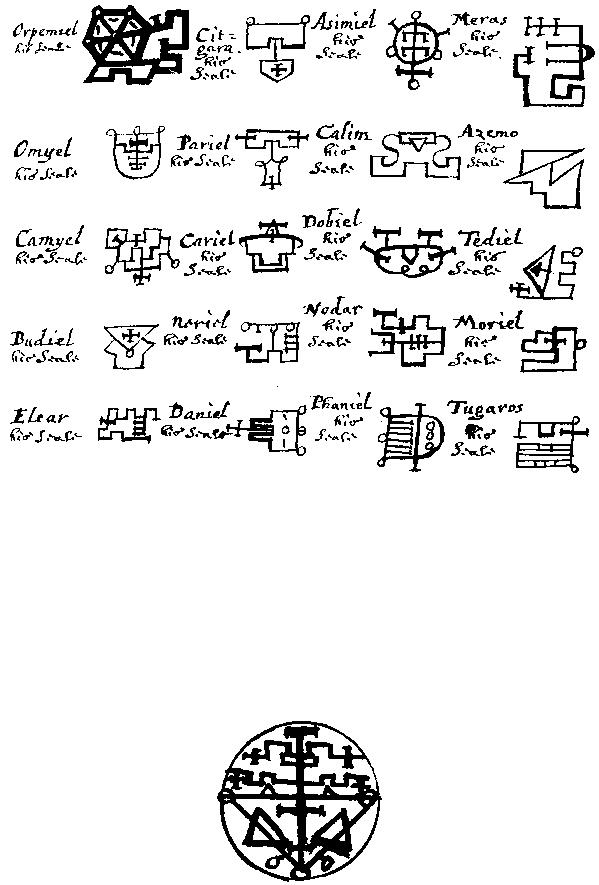 Orpemiel
his Seale
Cit=
gara.
his
Seale
Asimiel
his
Seale
Meras
his
Seale.
Omyel
his Seale
Pariel
his Seale
Calim
his
Seale
Azemo
his
Seale
Camyel
his Seale
Cariel
his
Seale
Dobiel
his
Seale
Tediel
his
Seale
Budiel
his Seale
Neriel
his Seale
Nodar
his
Seale
Moriel
his
Seale
Elcar
his Seale
Daniel
his Seale
Phaniel
his
Seale
Tugaros
his
Seale